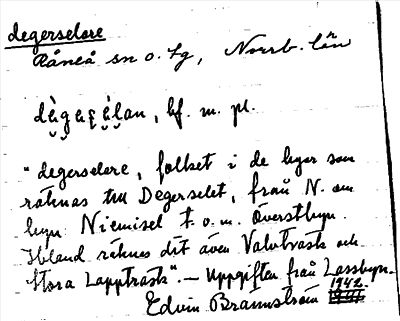 degerselare
Råneå sn o. tg, Norrb. län
bf. m. pl.
"degerselare, folket i de byar som
räknas till Degerselet, från N. om
byn Niemisel t.o.m. Överstbyn.
Ibland räknes dit även Valvträsk och
Stora Lappträsk". — Uppgiften från Lassbyn.
1942
Edvin Brännström